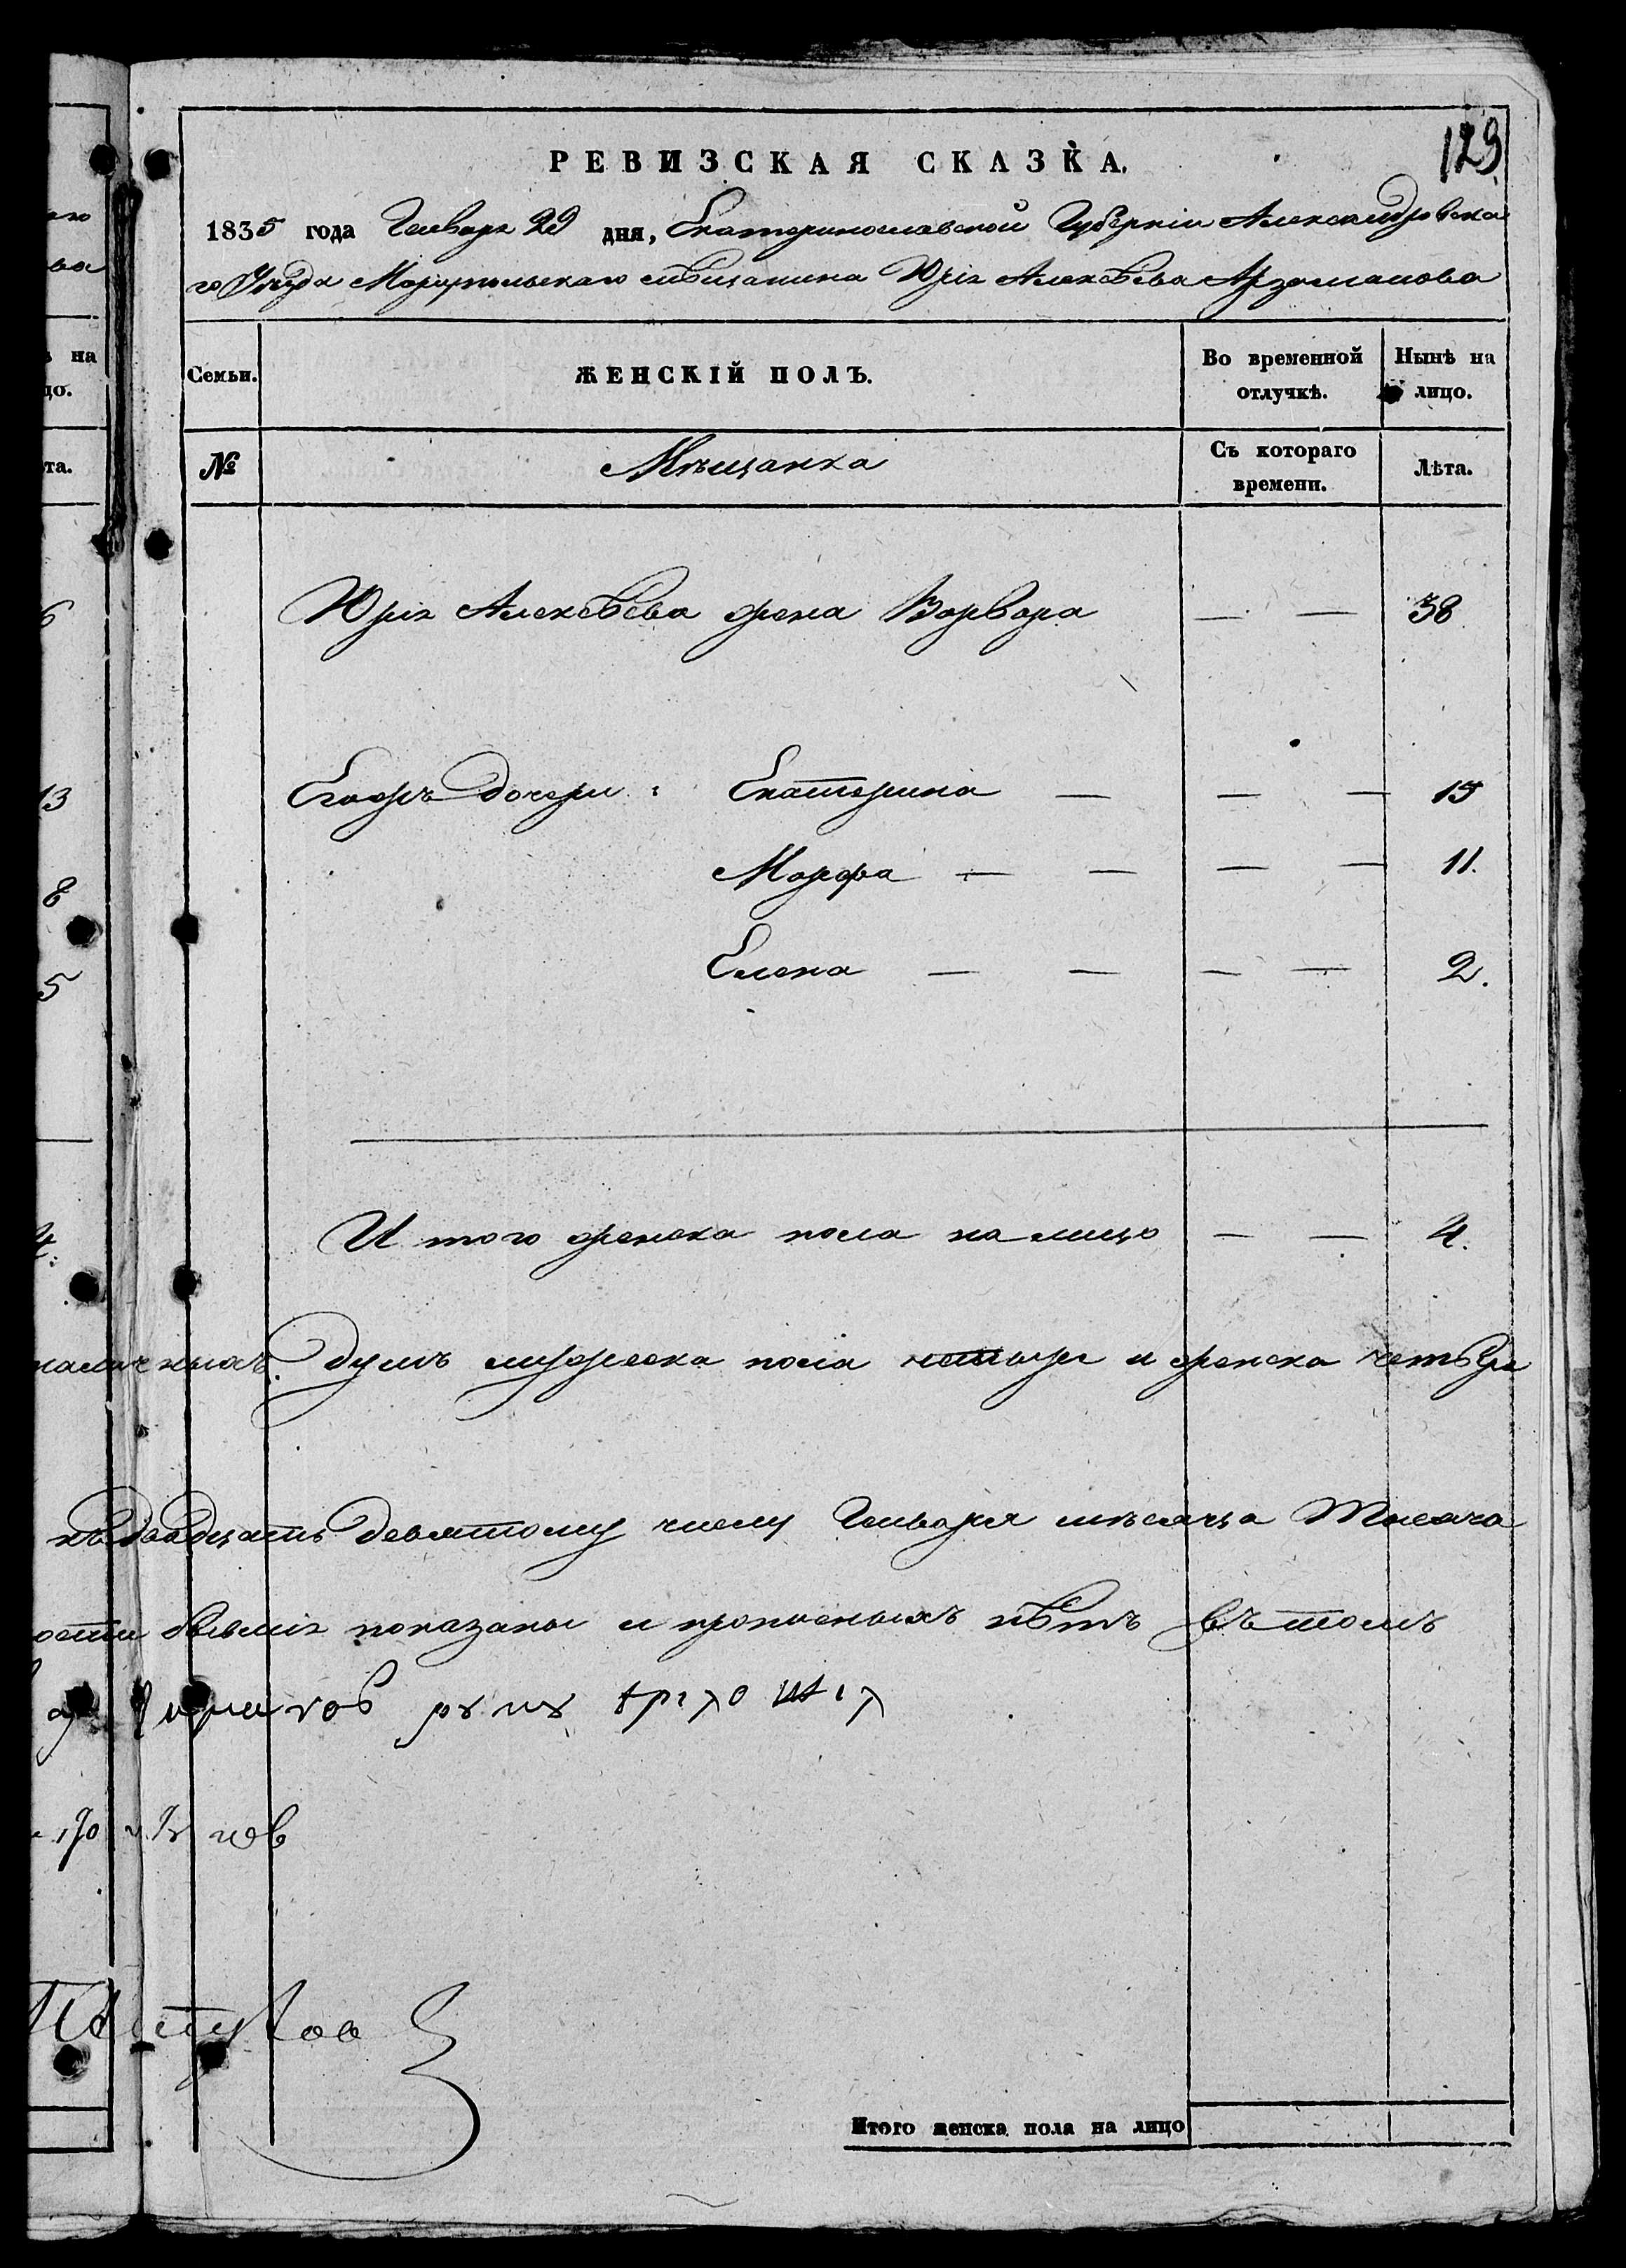 129
РЕВИЗСКАЯ СКАЗКА.
1835 года Генваря 29 дня, Екатеринославской Губернiи Александровска
го Уезда Марiупольскаго мѣщанина Юрiя Алексѣева Арзаманова
Семьи. ЖЕНСКIЙ ПОЛЪ. Во временной отлучкѣ. Нынѣ на лицо.
№ Мѣщанка Съ котораго времени. Лѣта.
Юрiя Алексѣева жена Варвара — — 38
Егожъ дочери: Екатерина — — — 15
Марфа — — — — 11.
Елена — — — — 2.
И того женска пола на лицо — — 4.
наличныхъ душъ мужеска пола четыри и женска четыре
къ двадцать девятому числу Генваря месяца Тысяча
показаны и прописныхъ нѣтъ въ томъ
Итого женска пола на лицо
на
цо.
та.
6
13
8
5
4.